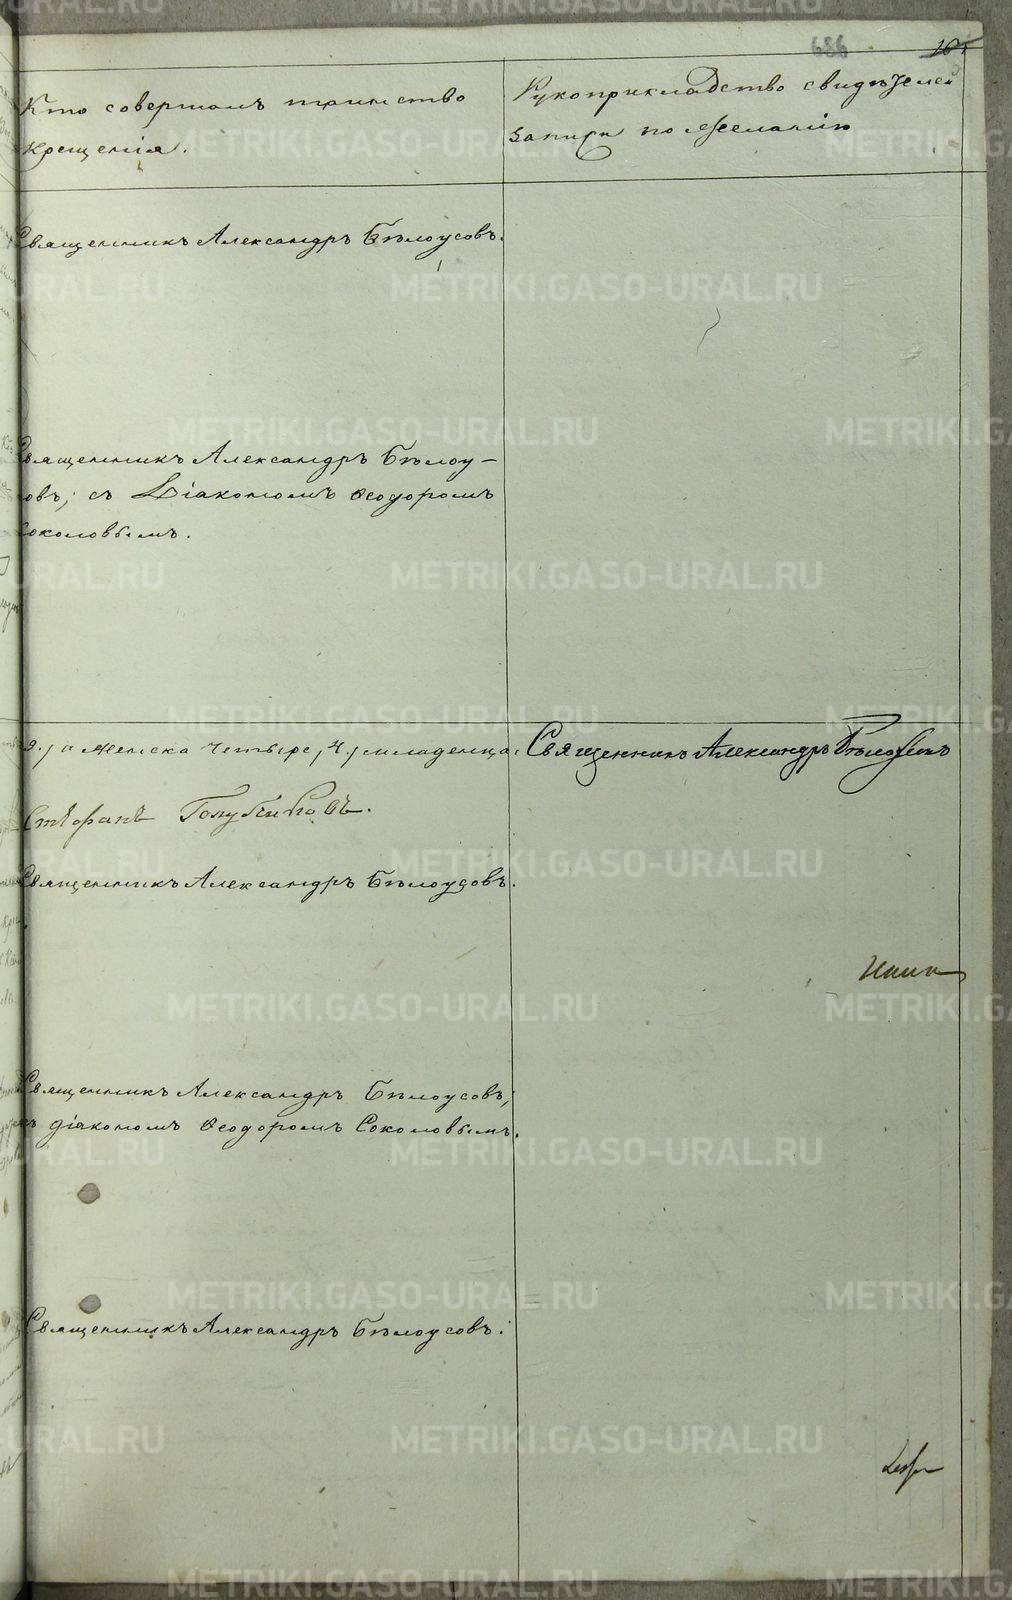 686
Кто совершалъ таинство
крещенія.
Рукоприкладство свидѣтелей
записи по желанію
Священникъ Александръ Бѣлоусовъ.
Священникъ Александръ Бѣлоу-
совъ; съ Діакономъ Ѳеодоромъ
Соколовымъ.
а женска четыре, 4, младенца.
Священникъ Александръ Бѣлоусовъ
Стефанъ Голубчиковъ.
Священникъ Александръ Бѣлоусовъ.
Священникъ Александръ Бѣлоусовъ;
съ діакономъ Ѳеодоромъ Соколовымъ.
Священникъ Александръ Бѣлоусовъ.
METRIKI.GASO-URAL.RU